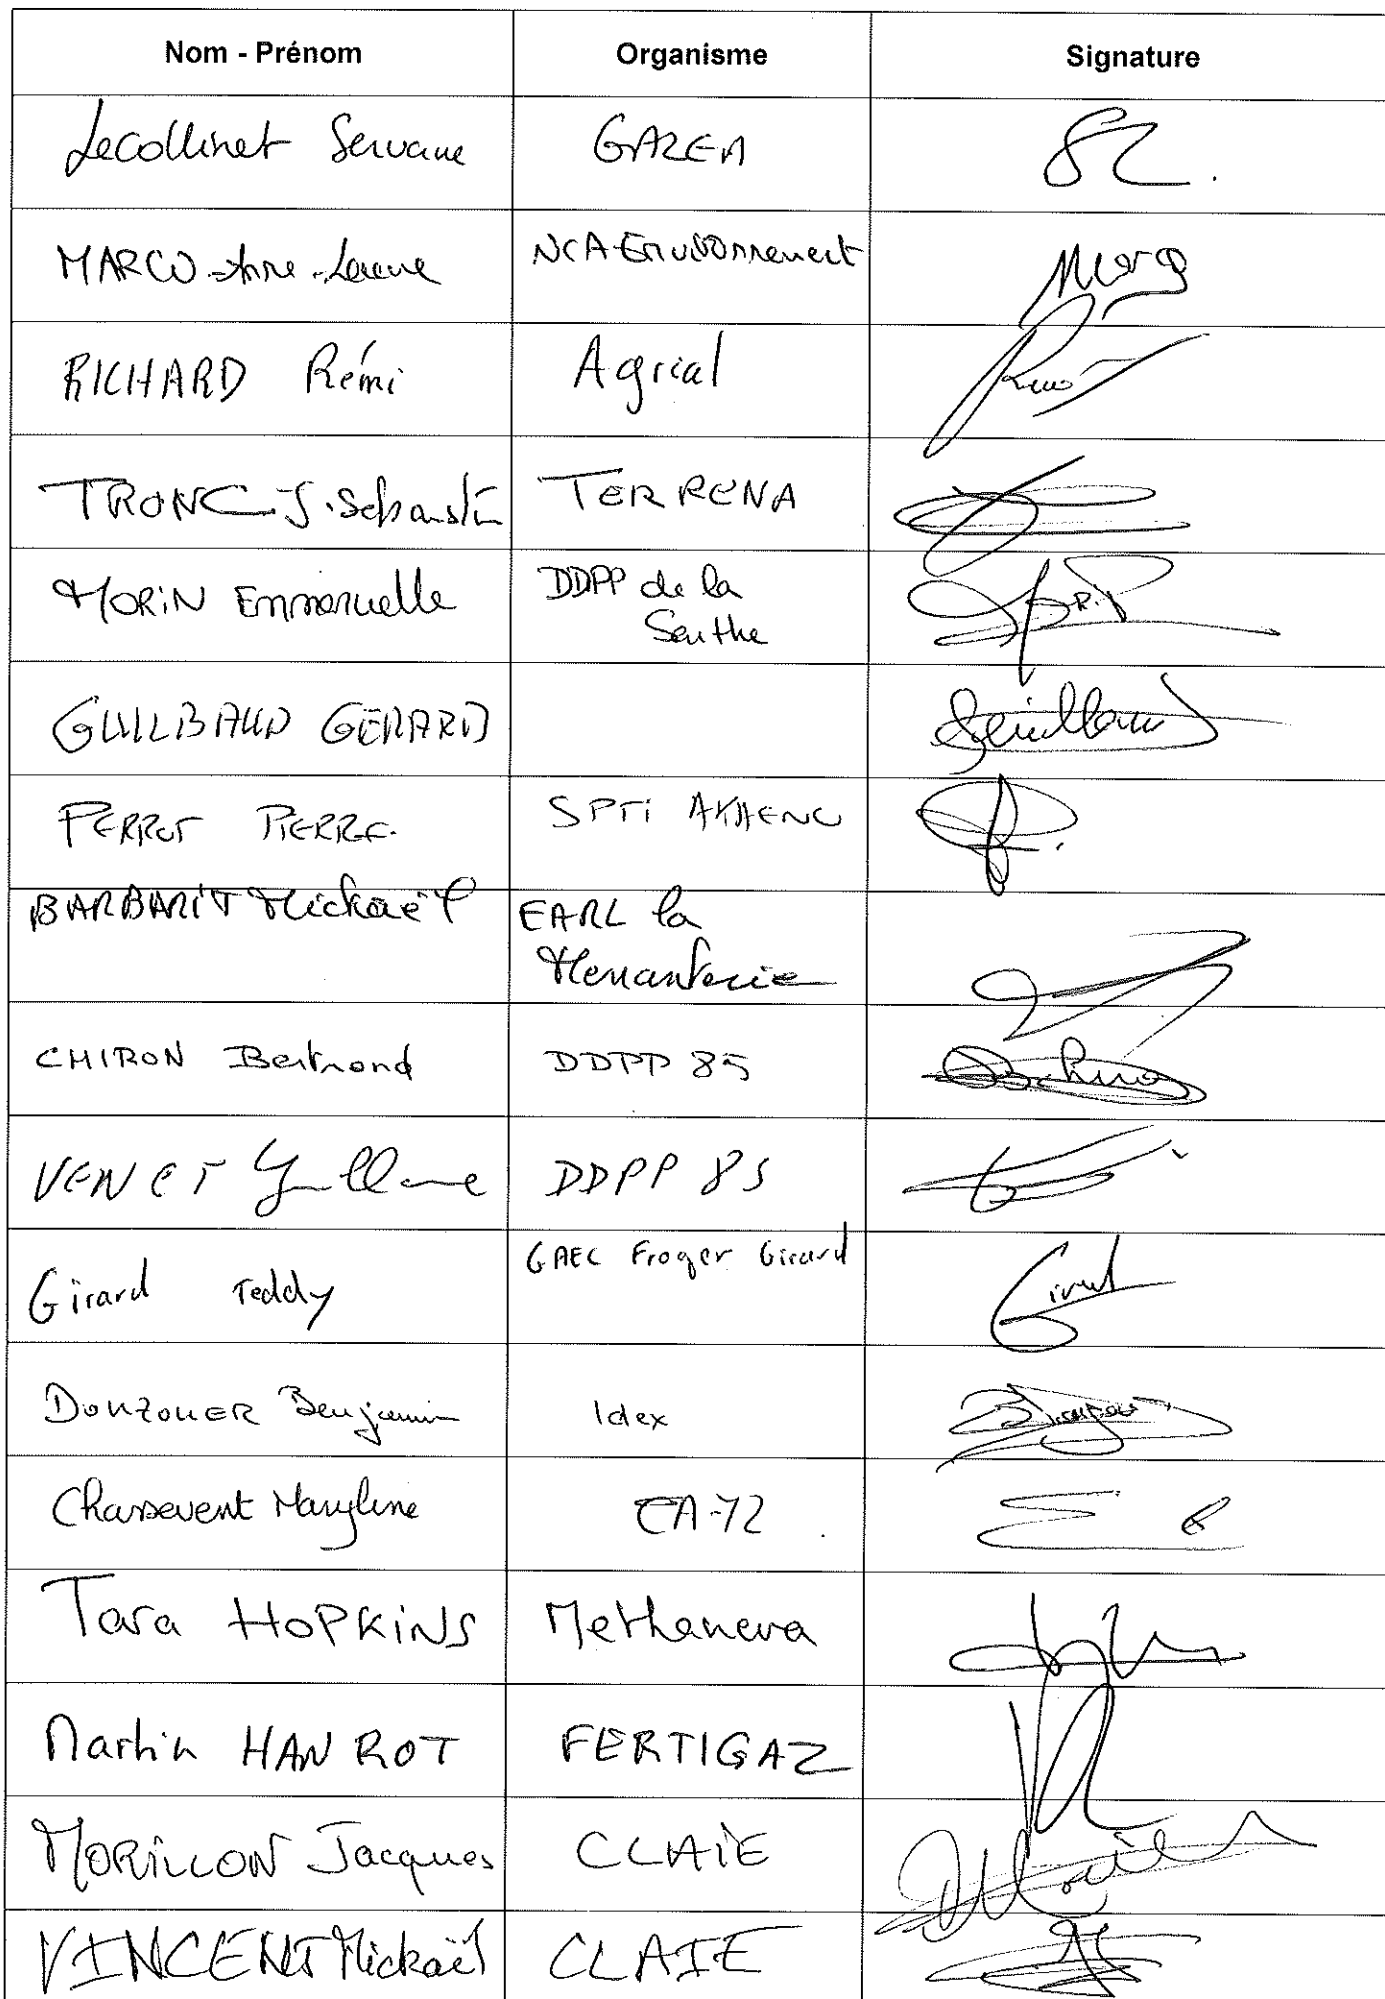 Nom - Prénom Organisme Signature
Lecollinet Servane GAZEA
MARCO Anne-Laure NCA Environnement
RICHARD Rémi Agrial
TRONC J. Sébastien TERRENA
MORIN Emmanuelle DDPP de la
Sarthe
GUILBAUD GERARD
PERROT PIERRE SPTi
BARBARIT Mickaël EARL la
Menanterie
CHIRON Bertrand DDPP 85
VENET Guillaume DDPP 85
Girard Teddy GAEC Froger Girard
Girard
DONZOUER Benjamin Idex
Chassevent Maryline CA-72
Tara HOPKINS Methaneva
Martin HANROT FERTIGAZ
MORILLON Jacques CLAIE
VINCENT Mickaël CLAIE